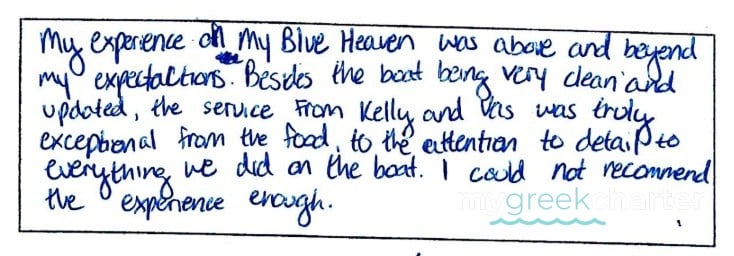 My experience on My Blue Heaven was above and beyond
my expectactions. Besides the boat being very clean and
updated, the service from Kelly and Vas was truly
exceptional from the food, to the attention to detail, to
everything we did on the boat. I could not recommend
the experience enough.
mygreekcharter